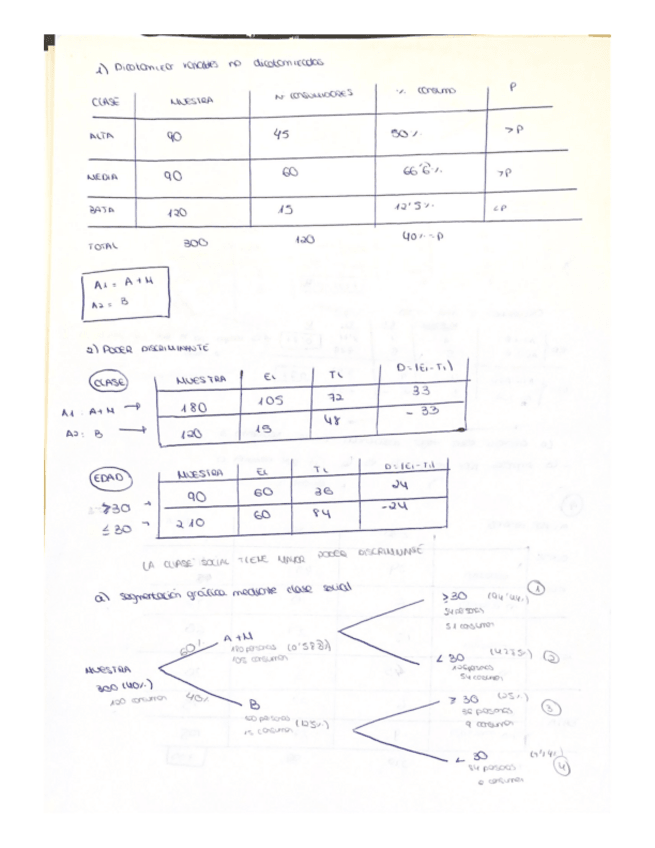 1) Dicotomizar variables no dicotomizadas
CLASE MUESTRA Nº CONSUMIDORES % CONSUMO P
ALTA 90 45 50% >P
MEDIA 90 60 66'6% >P
BAJA 120 15 12'5% <P
TOTAL 300 120 40% = P
A1 = A + M
A2 = B
2) PODER DISCRIMINANTE
CLASE MUESTRA Ei Ti D=(Ei-Ti)
A1: A+M → 180 105 72 33
A2: B → 120 15 48 -33
EDAD MUESTRA Ei Ti D=(Ei-Ti)
≥30 → 90 60 36 24
≤30 → 210 60 84 -24
LA CLASE SOCIAL TIENE MAYOR PODER DISCRIMINANTE
a) Segmentación gráfica mediante clase social
≥30 1
54 personas
51 consumen
60% A+M
105 consumen
< 30 2
54 consumen
MUESTRA
300 (40%)
120 consumen
40% B
120 personas
15 consumen
≥ 30 (25%) 3
36 personas
9 consumen
< 30 4
84 personas
6 consumen